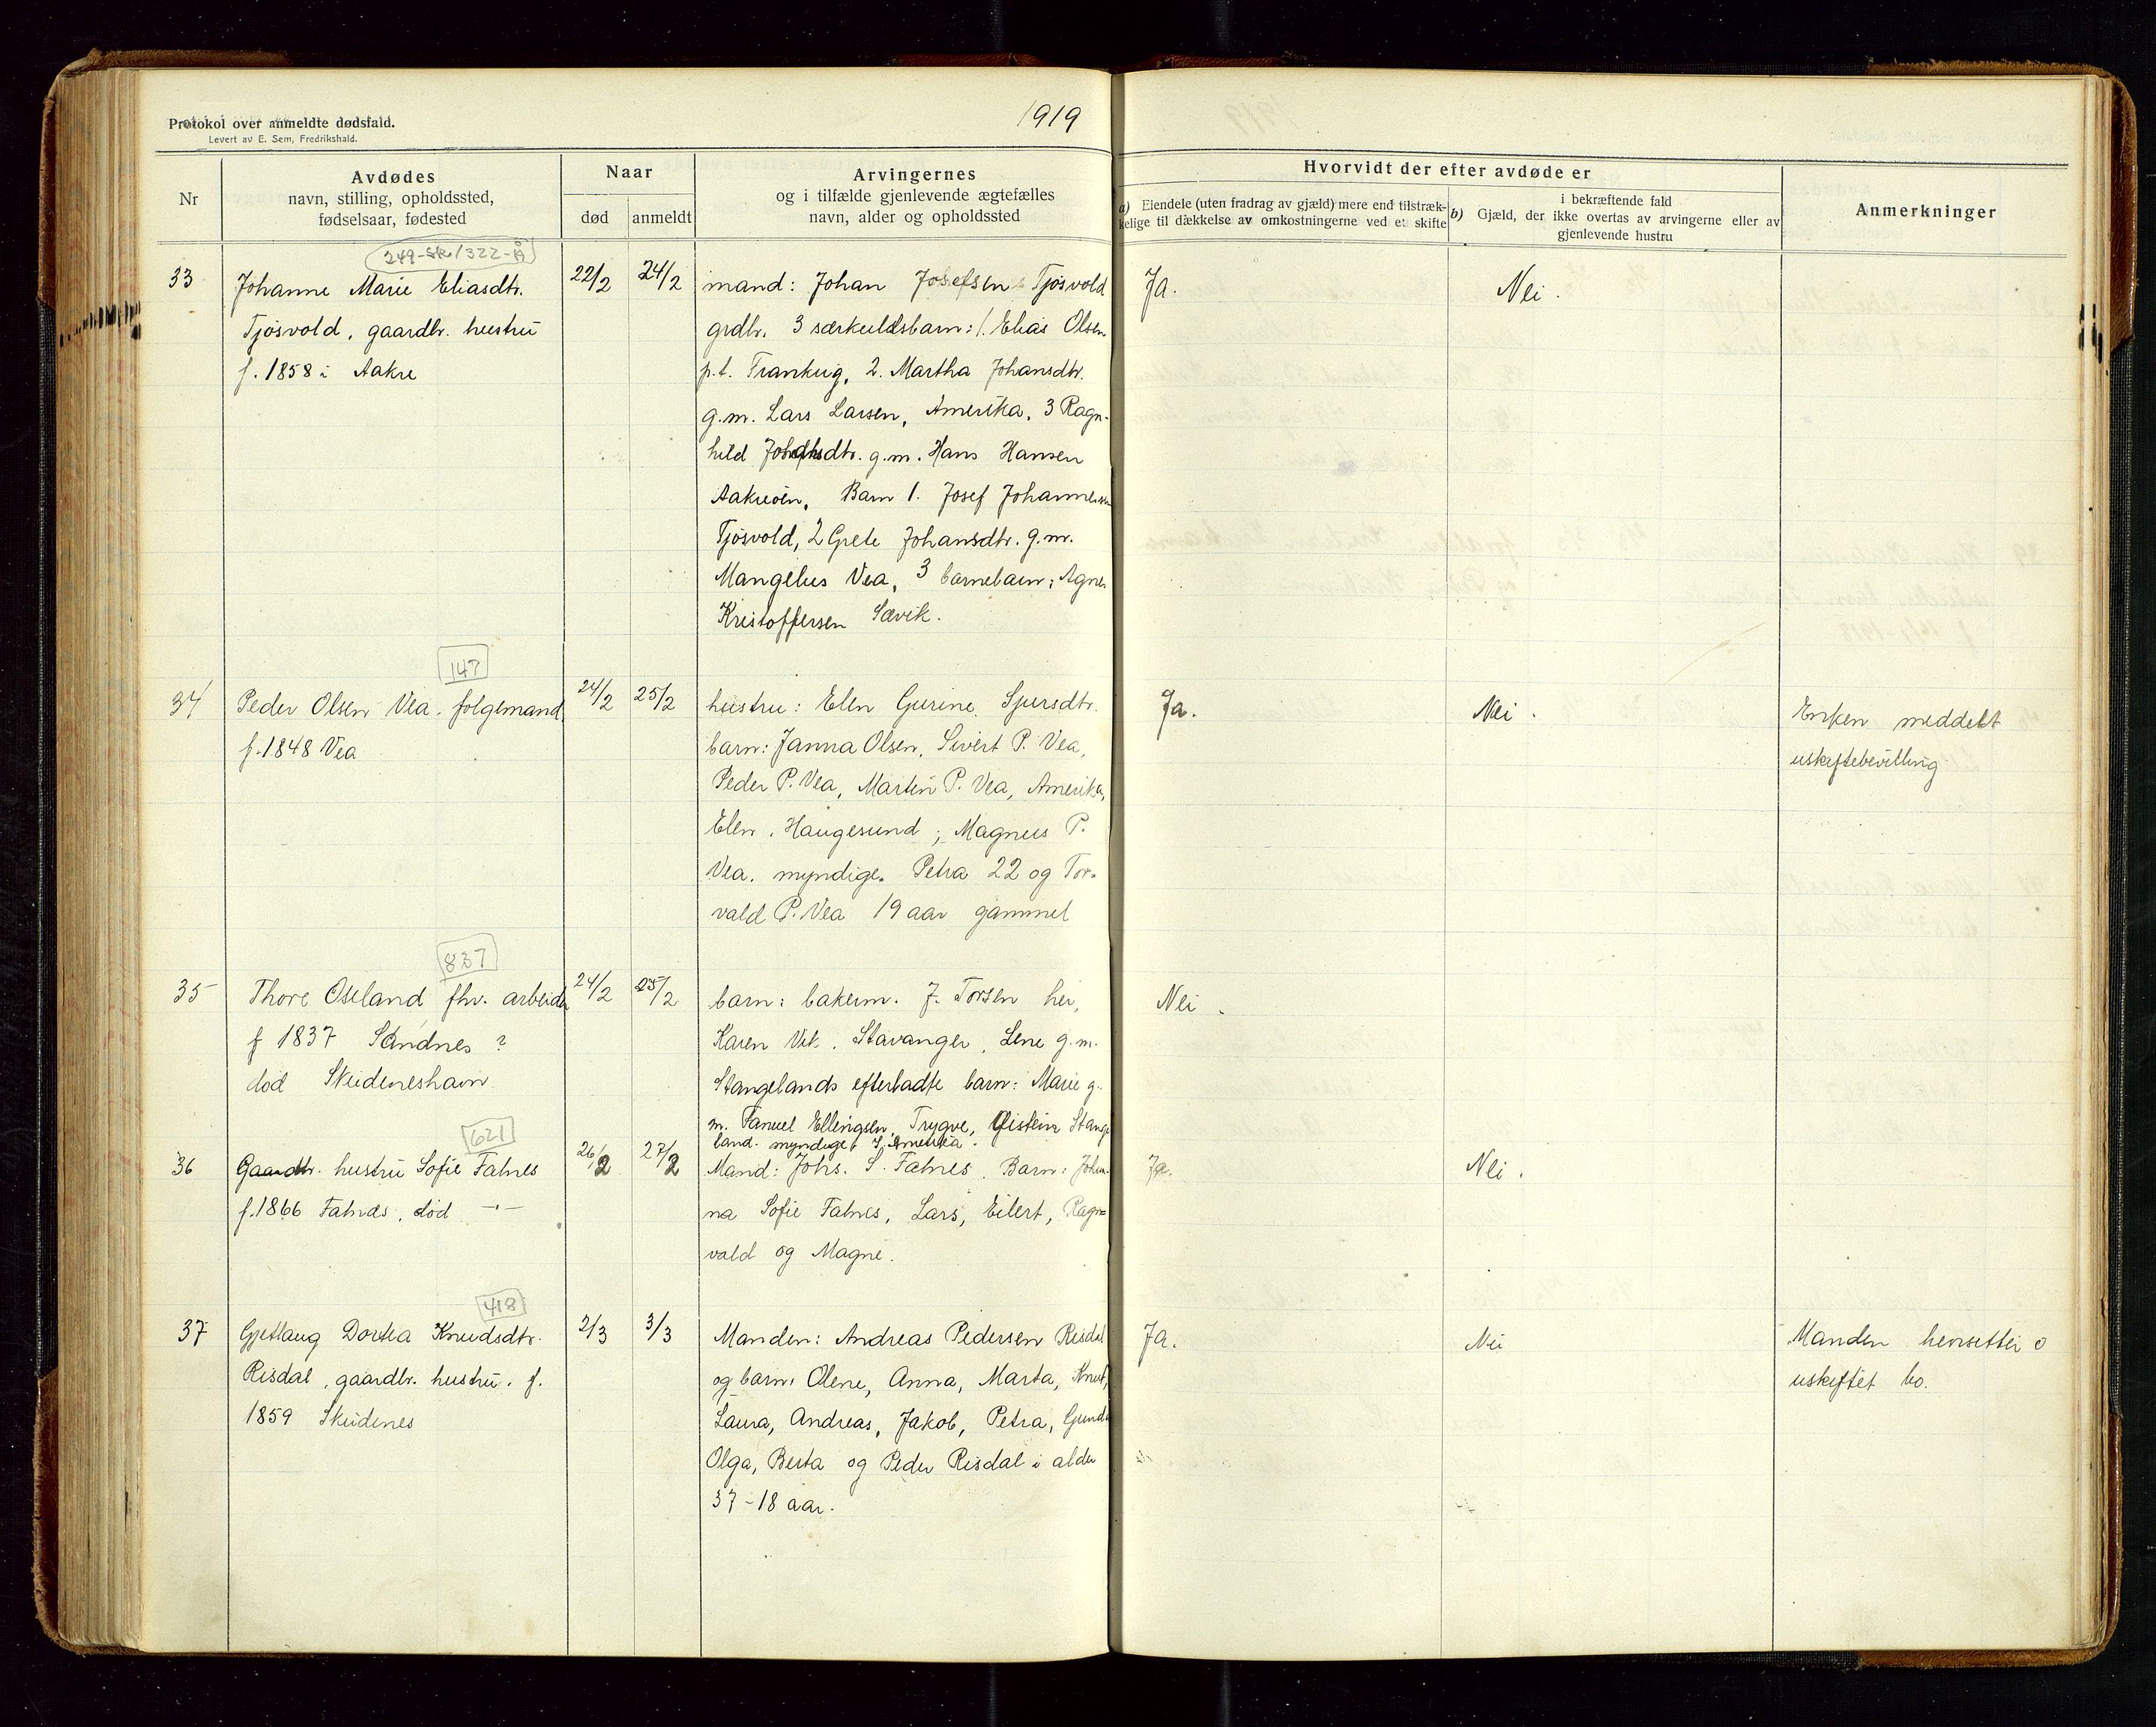 Protokol over anmeldte dødsfald.
Levert av E. Sem, Fredrikshald.
1919
Nr
Avdødes
navn, stilling, opholdssted,
fødselsaar, fødested
Naar
død
anmeldt
Arvingernes
og i tilfælde gjenlevende ægtefælles
navn, alder og opholdssted
Hvorvidt der efter avdøde er
a) Eiendele (uten fradrag av gjæld) mere end tilstræk-
kelige til dækkelse av omkostningerne ved et skifte
i bekræftende fald
b) Gjæld, der ikke overtas av arvingerne eller av
gjenlevende hustru
Anmerkninger
33
Johanne Marie Eliasdtr.
Tjøsvold, gaardbr. hustru
f. 1858 i Aakre
22/2
24/2
mand: Johan Josefsen Tjøsvold
grdbr. 3 særkuldsbarn: 1. Elias Olsen
p.t. 2. Martha Johansdtr.
g.m. Lars Larsen, Amerika, 3 Ragn-
hild g.m. Hans Hansen
Aakreøen, Barn 1. Josef Johannessen
Tjøsvold, 2 Grete Johansdtr. g.m.
Mangelus Vea, 3 barnebarn: Agnes
Kristoffersen Sævik.
Ja.
Nei.
147
34
Peder Olsen Vea. følgemand,
f. 1848 Vea
24/2
25/2
hustru: Elen Gurine Sjursdtr.
barn: Janna Olsen, Sivert P. Vea,
Peder P. Vea, Martin P. Vea, Amerika,
Elen, Haugesund; Magnus P.
Vea, myndige. Petra 22 og Tor-
vald P. Vea 19 aar gammel
Ja.
Nei.
Enken meddelt
uskiftebevilling
837
35
Thore Oseland fhv. arbeider
f 1837 Sandnes ?
død Skudeneshavn
24/2
25/2
barn: bakerm. J. Torsen her,
Karen Vik, Stavanger, Lene g.m.
Stangelands efterladte barn: Marie g.
m. Fanuel Ellingsen, Trygve, Øistein Stange
land. myndige, i Amerika.
Nei.
621
36
Gaardbr. hustru Sofie Falnes
f. 1866 Falnes, død —"—
26/2
27/2
Mand: Johs. S. Falnes. Barn: Johan-
na Sofie Falnes, Lars, Eilert, Ragn-
vald og Magne.
Ja.
Nei.
418
37
Gjetlaug Dortea Knudsdtr.
Risdal, gaardbr. hustru. f.
1859 Skudenes
2/3
3/3
Manden: Andreas Pedersen Risdal
og barn: Olene, Anna, Marta, Knut,
Laura, Andreas, Jakob, Petra,
Olga, Berta og Peder Risdal i alder
37-18 aar.
Ja.
Nei
Manden hensitter i
uskiftet bo.